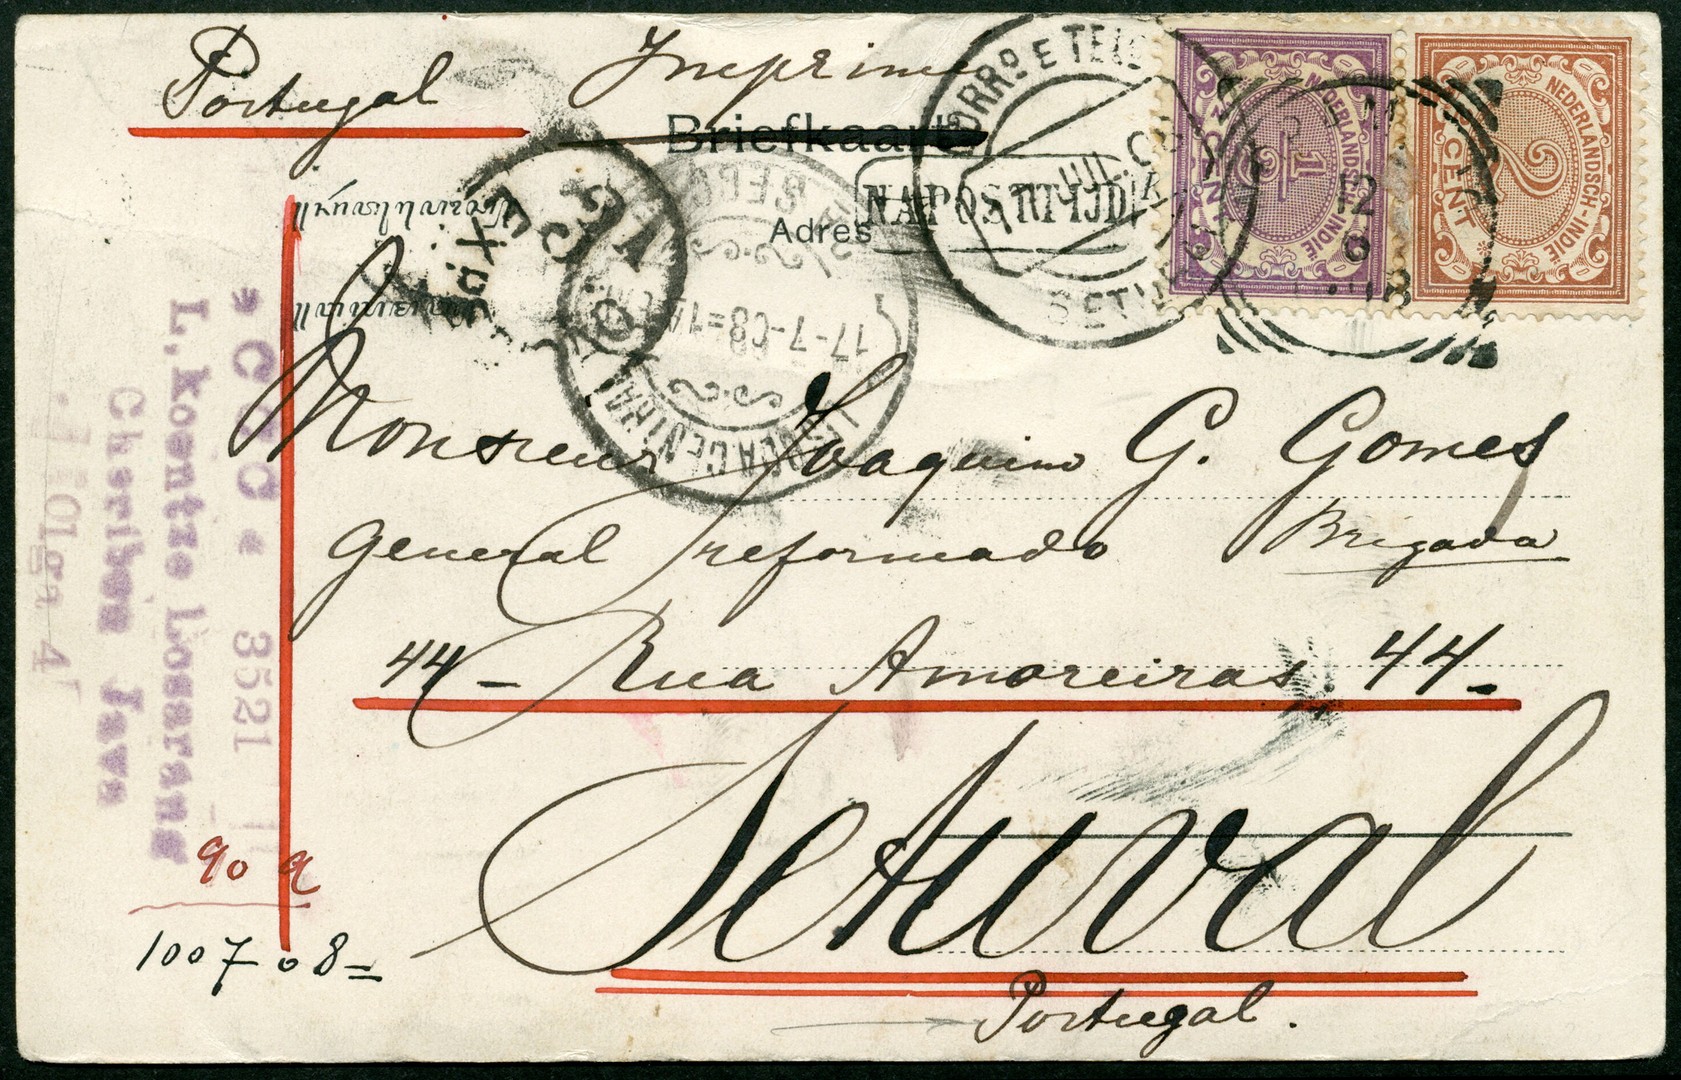 Portugal
Imprimé
Briefkaart
Adres
NAPOSTTIJD
CORRO E TELG
JUL. 08
SETUBAL
NEDERLANDSCH-INDIË
½
CENT
NEDERLANDSCH-INDIË
2
CENT
12
6
17-7-08=1
LISBOA CENTRAL
Monsieur Joaquim G. Gomes
General reformado Brigada
44 - Rua Amoreiras 44 -
Setuval
Portugal.
CCC 3521
L. Koentze Lossrans
Cheribon Java
Olga 4
1007.08=